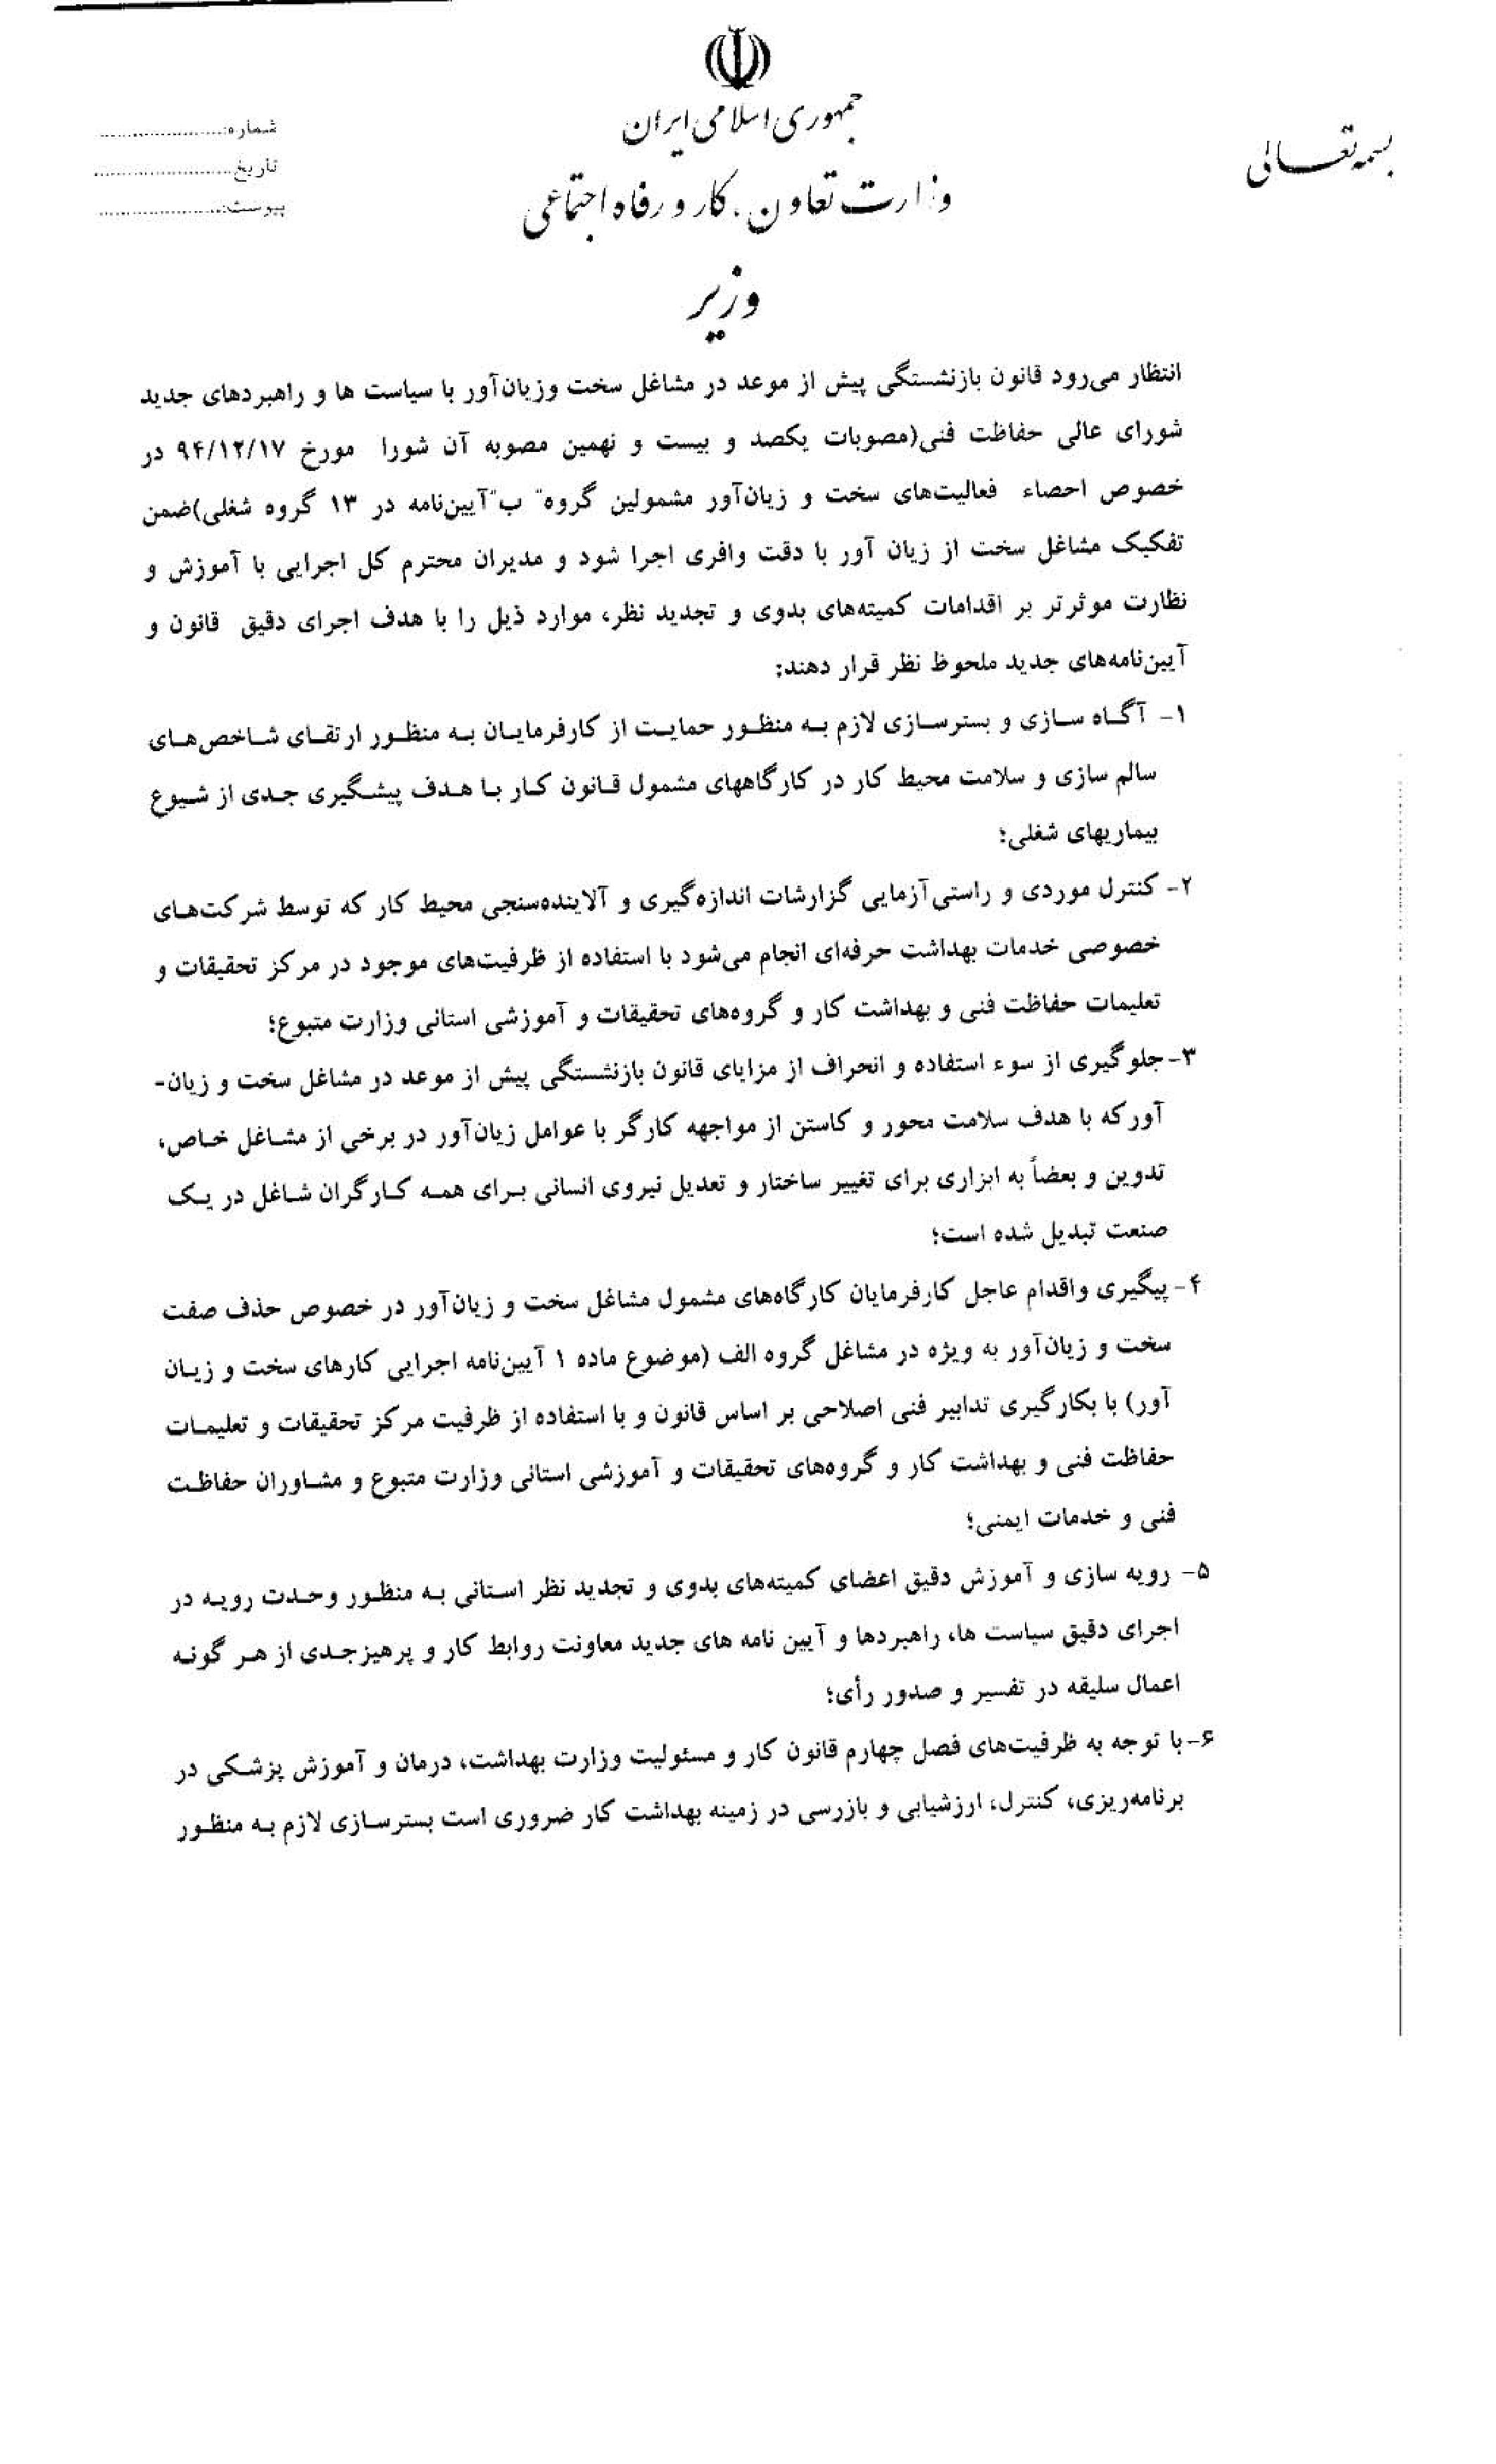 بسمه تعالی
جمهوری اسلامی ایران
وزارت تعاون، کار و رفاه اجتماعی
وزیر
شماره:......................
تاریخ.........................
پیوست:......................
انتظار می‌رود قانون بازنشستگی پیش از موعد در مشاغل سخت وزیان‌آور با سیاست ها و راهبردهای جدید
شورای عالی حفاظت فنی(مصوبات یکصد و بیست و نهمین مصوبه آن شورا مورخ ۹۴/۱۲/۱۷ در
خصوص احصاء فعالیت‌های سخت و زیان‌آور مشمولین گروه" ب"آیین‌نامه در ۱۳ گروه شغلی)ضمن
تفکیک مشاغل سخت از زیان آور با دقت وافری اجرا شود و مدیران محترم کل اجرایی با آموزش و
نظارت موثرتر بر اقدامات کمیته‌های بدوی و تجدید نظر، موارد ذیل را با هدف اجرای دقیق قانون و
آیین‌نامه‌های جدید ملحوظ نظر قرار دهند:
۱- آگاه سازی و بسترسازی لازم به منظور حمایت از کارفرمایان به منظور ارتقای شاخص‌های
سالم سازی و سلامت محیط کار در کارگاههای مشمول قانون کار با هدف پیشگیری جدی از شیوع
بیماریهای شغلی؛
۲- کنترل موردی و راستی‌آزمایی گزارشات اندازه‌گیری و آلاینده‌سنجی محیط کار که توسط شرکت‌های
خصوصی خدمات بهداشت حرفه‌ای انجام می‌شود با استفاده از ظرفیت‌های موجود در مرکز تحقیقات و
تعلیمات حفاظت فنی و بهداشت کار و گروه‌های تحقیقات و آموزشی استانی وزارت متبوع؛
۳- جلوگیری از سوء استفاده و انحراف از مزایای قانون بازنشستگی پیش از موعد در مشاغل سخت و زیان-
آورکه با هدف سلامت محور و کاستن از مواجهه کارگر با عوامل زیان‌آور در برخی از مشاغل خاص،
تدوین و بعضاً به ابزاری برای تغییر ساختار و تعدیل نیروی انسانی برای همه کارگران شاغل در یک
صنعت تبدیل شده است؛
۴- پیگیری واقدام عاجل کارفرمایان کارگاه‌های مشمول مشاغل سخت و زیان‌آور در خصوص حذف صفت
سخت و زیان‌آور به ویژه در مشاغل گروه الف (موضوع ماده ۱ آیین‌نامه اجرایی کارهای سخت و زیان
آور) با بکارگیری تدابیر فنی اصلاحی بر اساس قانون و با استفاده از ظرفیت مرکز تحقیقات و تعلیمات
حفاظت فنی و بهداشت کار و گروه‌های تحقیقات و آموزشی استانی وزارت متبوع و مشاوران حفاظت
فنی و خدمات ایمنی؛
۵- رویه سازی و آموزش دقیق اعضای کمیته‌های بدوی و تجدید نظر استانی به منظور وحدت رویه در
اجرای دقیق سیاست ها، راهبردها و آیین نامه های جدید معاونت روابط کار و پرهیزجدی از هر گونه
اعمال سلیقه در تفسیر و صدور رأی؛
۶- با توجه به ظرفیت‌های فصل چهارم قانون کار و مسئولیت وزارت بهداشت، درمان و آموزش پزشکی در
برنامه‌ریزی، کنترل، ارزشیابی و بازرسی در زمینه بهداشت کار ضروری است بسترسازی لازم به منظور